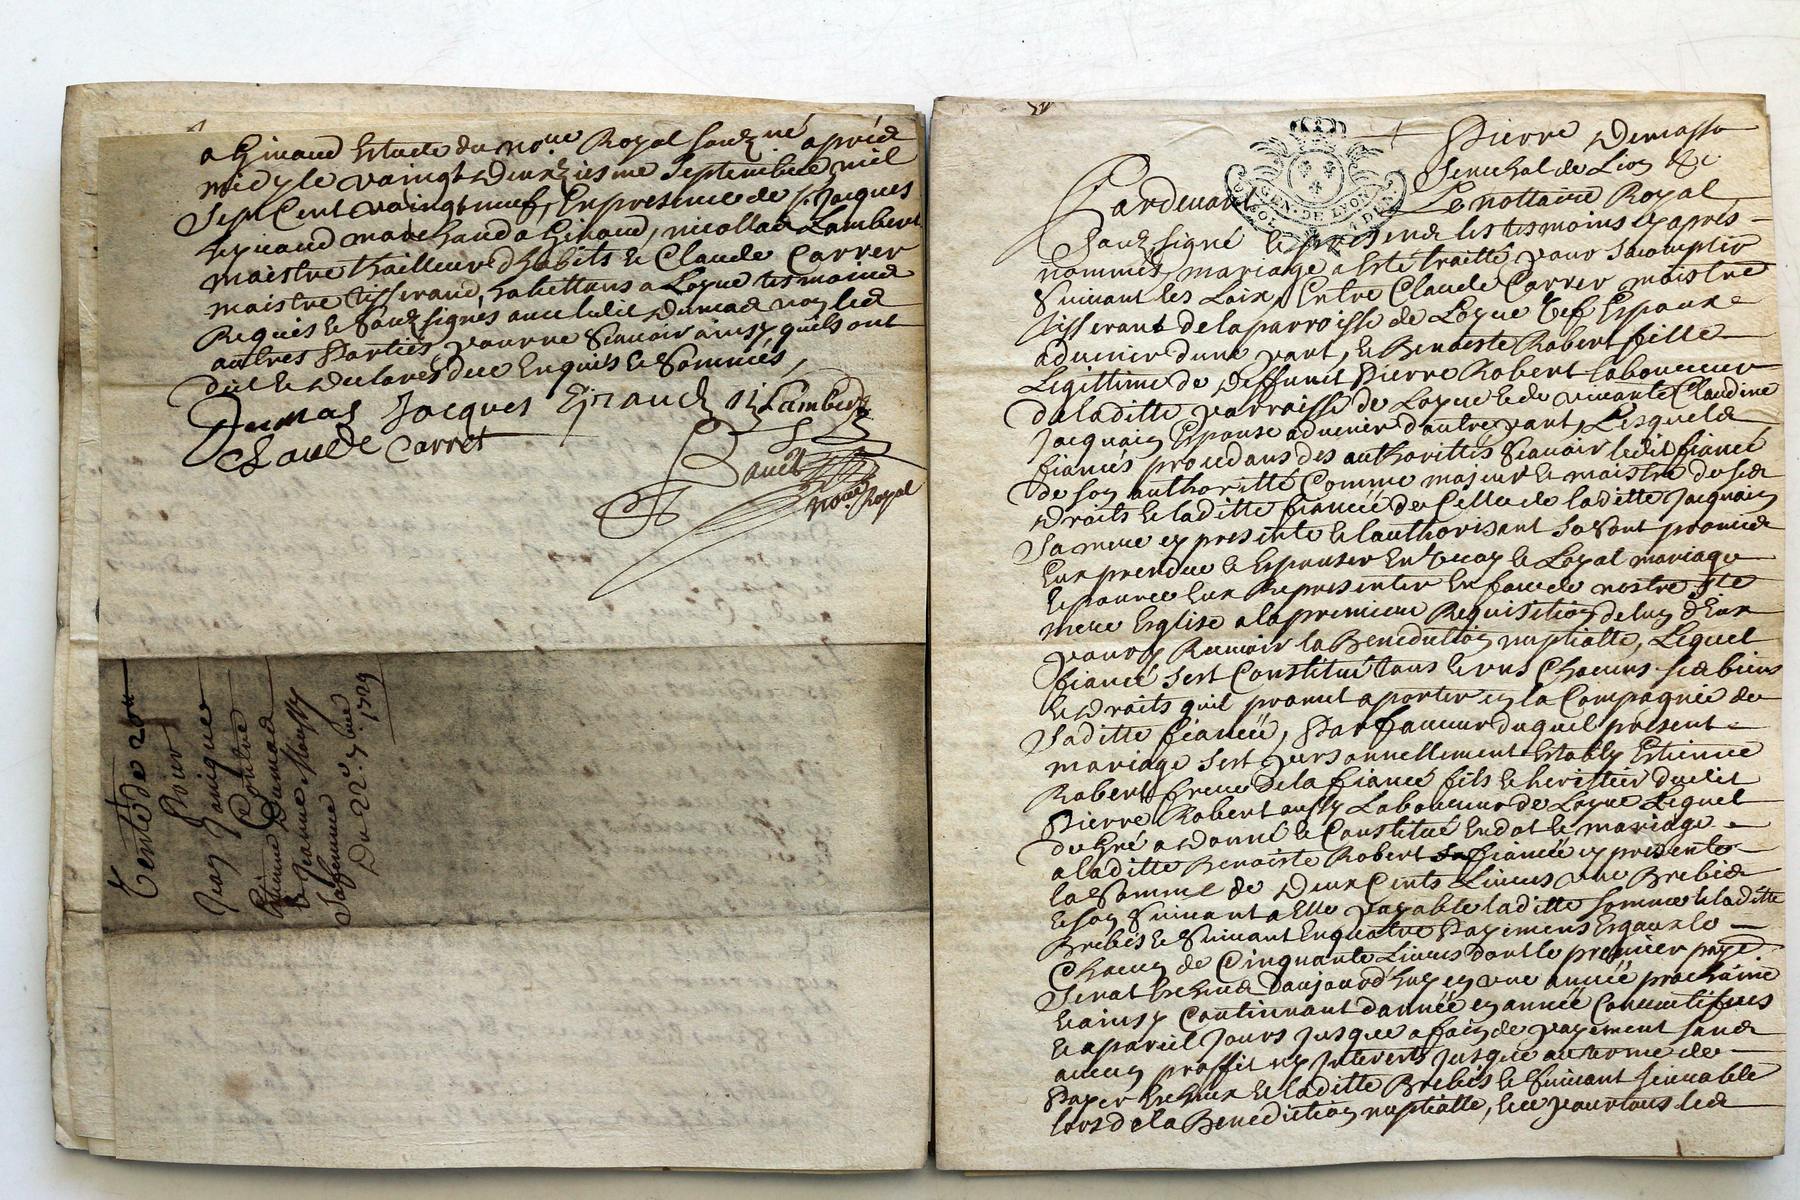 a Giraud Estude du no.re Royal soubz né apprès
midy le vaingt deuxziesme septembre mil
sept Cent vaingt neuf, En presence de s. Jacques
marchand a Giraud, nicollas Lambert
maistre thailleur d'habits et Claude Carrer
maistre tisserand, habittans a Loyue tesmoins
Requis et soubz signés avec ledit Dumas non les
autres Parties pour ne scavoir ainsy quils ont
dit et declarés de ce Enquis et sommés,
Dumas Jacques Giraud n Lambert
Claude Carret
no.re Royal
Vente de 20#
Jean
Estienne Dumas
et Jeanne
sa femme
Du 22e 7bre
1729
Pierre Demasso
Senechal de Lion &c
GEN. DE LYON
Pardevant Le nottaire Royal
soubz signé et presens les tesmoins cy aprés
nommés, mariage a esté traitté pour sacomplir
suivant les Loix, Entre Claude Carrer maistre
tisserant de la parroisse de Loyue Espoux
advenir dune part, et Benoiste Robert fille
Legittime de deffunct Pierre Robert laboureur
de laditte parroisse de Loyue et de vivante Claudine
Jacquain Espouse advenir d'autre part, Lesquels
fiancés procedans des authorittés scavoir ledit fiancé
de son authoritté Comme majeur et maistre de ses
droits et laditte fiancée de Celle de laditte Jacquain
sa mere cy presente et lauthorisant se sont promis
Eux prendre et Espouser En vray et Loyal mariage
et pour ce Eux Representer En face de nostre ste
mere Esglise a la premiere Requisition de lun d'Eux
pour y Recevoir la Benediction nuptialle, Lequel
fiancé sest Constitué tous et uns Chacuns ses biens
et droits quil promet aporter en la Compagnie de
saditte fiancée, Par faveur duquel present
mariage sest personnellement Estably Estienne
Robert frere de la fiancée fils et heritier dudit
Pierre Robert aussy Laboureur de Loyue Lequel
de gré a donné et Constitué En dot et mariage
a laditte Benoiste Robert sa fiancée cy presente
la somme de Deux Cents Livres une Brebis
et son suivant a Elle payable laditte somme et laditte
Brebis et suivant En quatre Payemens Esgaux
Chacun de Cinquante Livres dont le premier paye
serat Escheus d'aujourd'huy en une année prochaine
et ainsy Continuant d'année en année Consecutifues
et a pareil Jours Jusque a fain de payement sans
aucun proffit ny Interests Jusque au terme de
Payer Escheux et laditte Brebis et suivant
lors de la Benediction nuptialle, et ce pour tous les